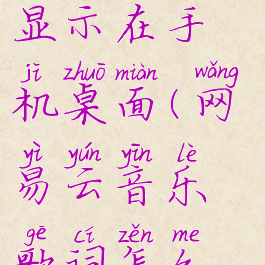 显示在手
jī zhuō miàn wǎng
机桌面(网
yì yún yīn lè
易云音乐
gē cí zěn me
歌词怎么